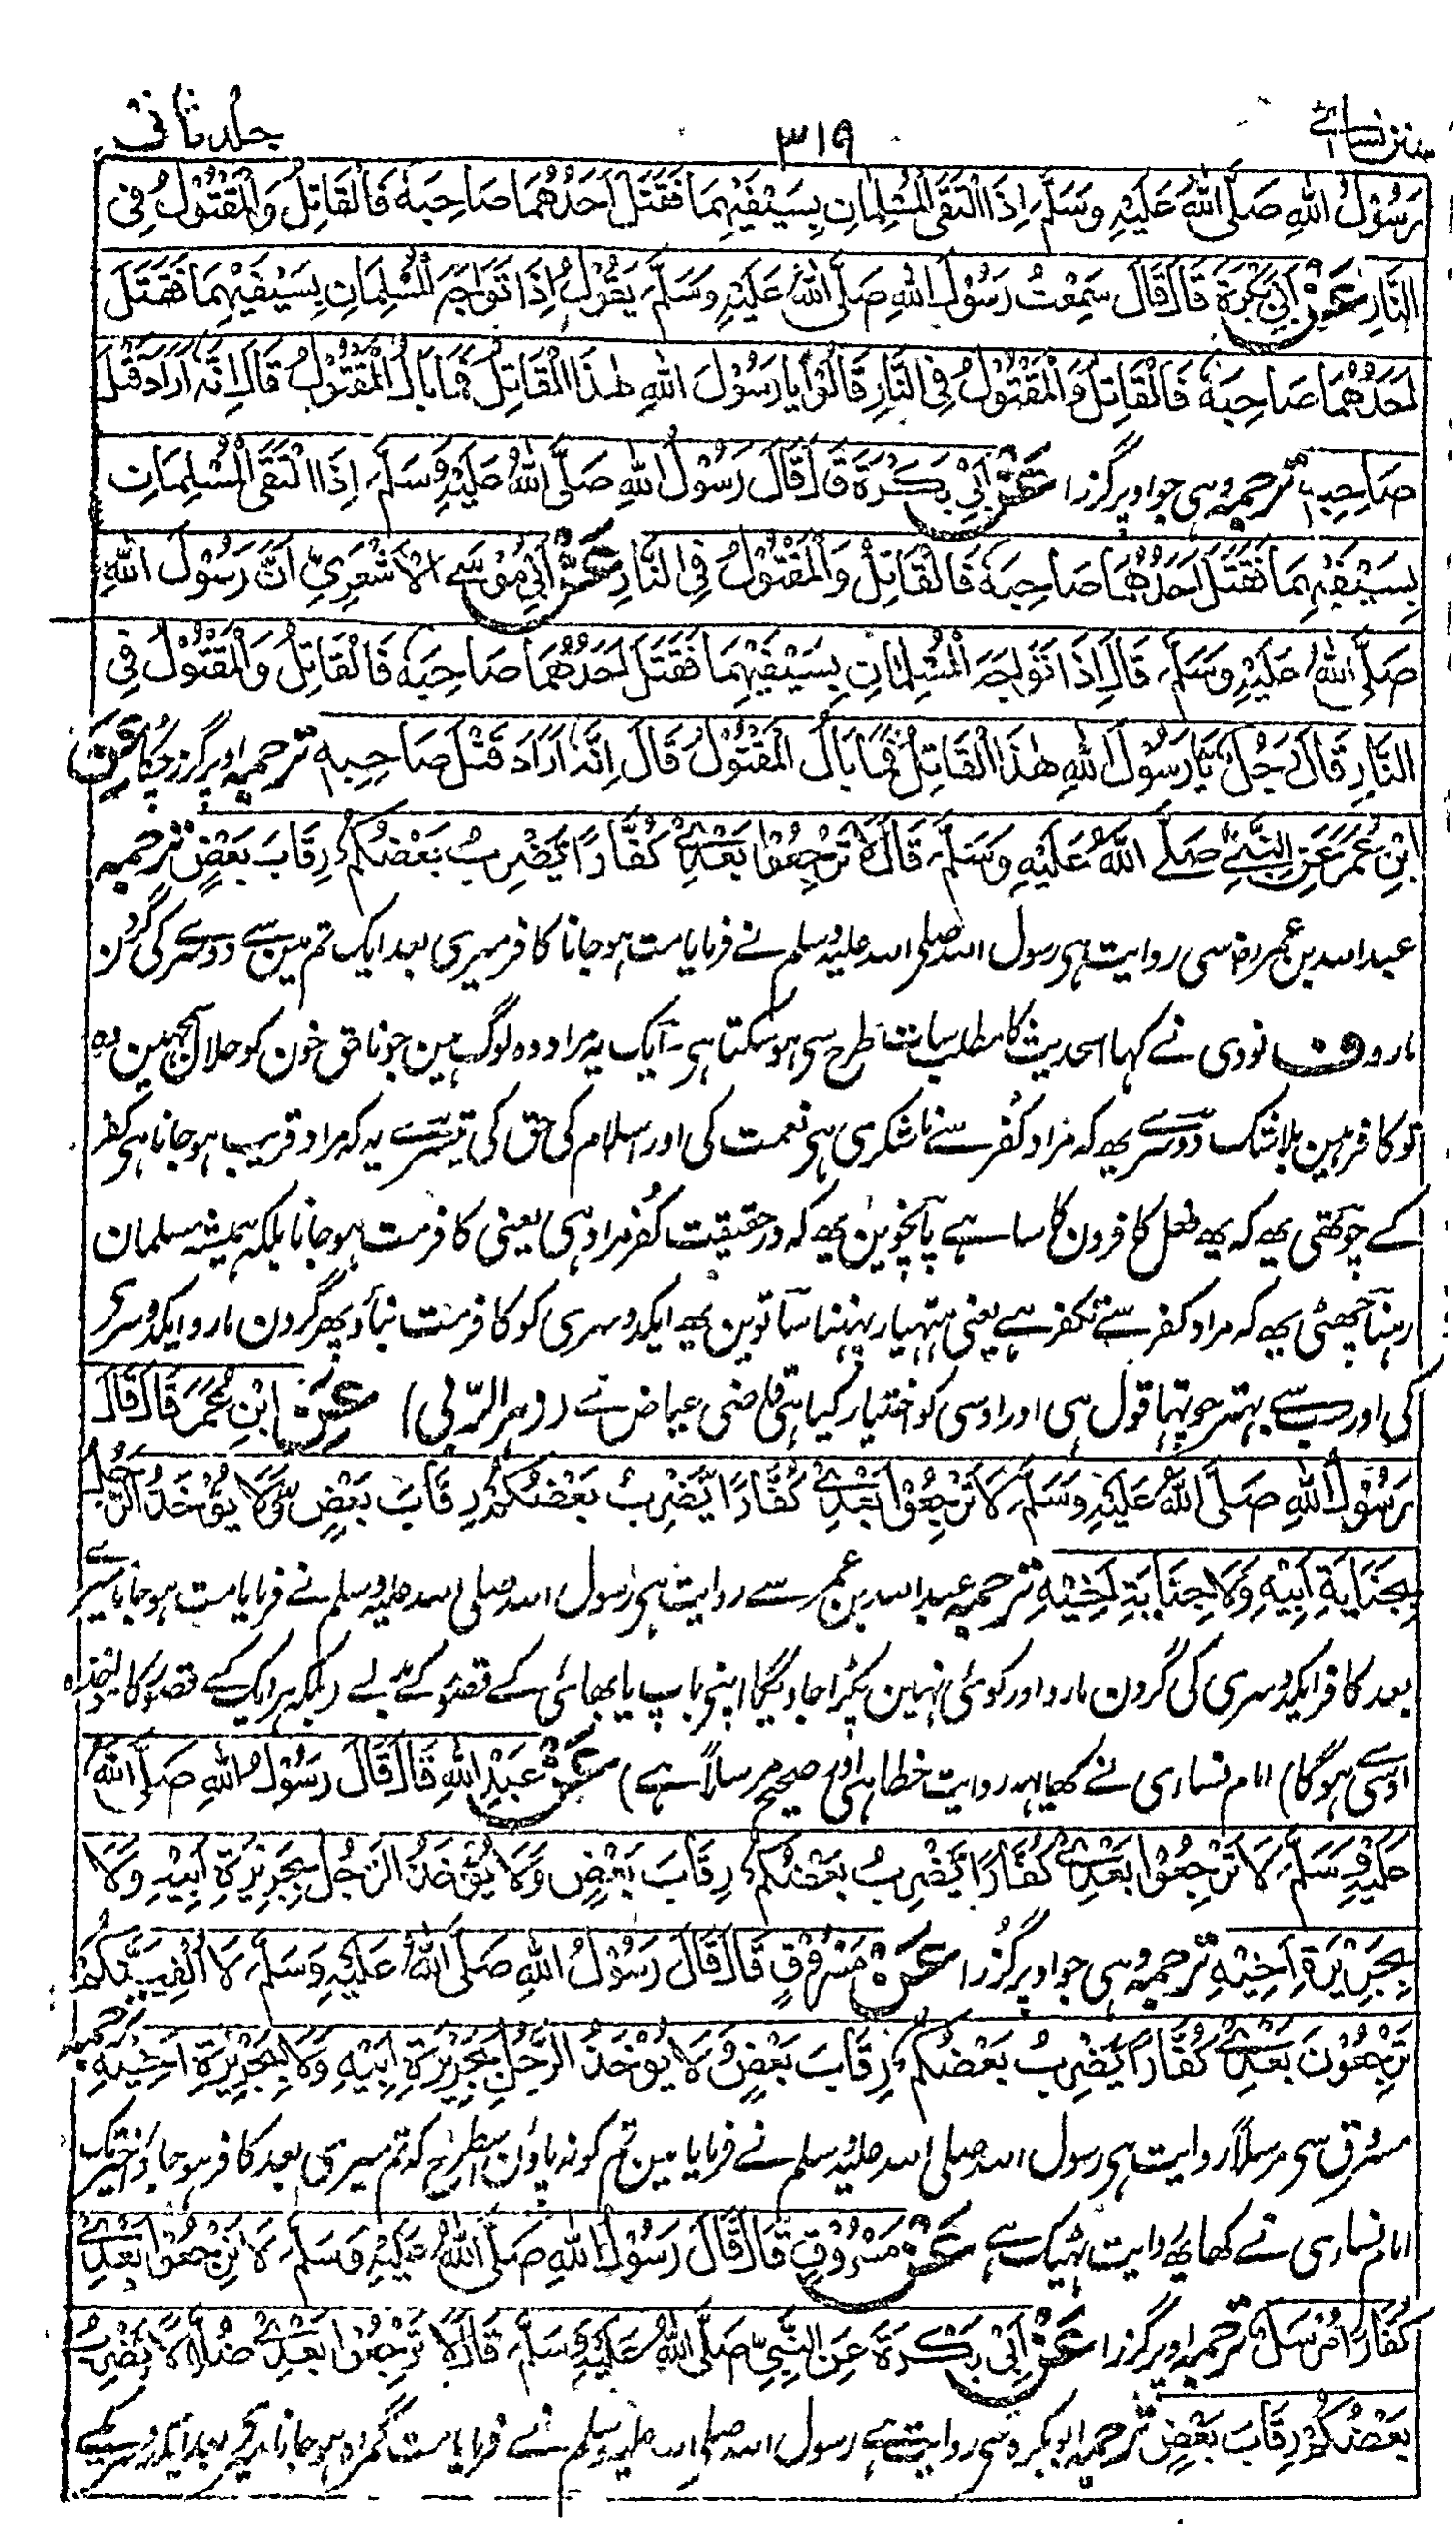 سنن نسائے ٣١٩ جلد ثانی
رَسُوْلُ اللهِ صَلَّى اللهُ عَلَيْهِ وَسَلَّمَ اِذَا الْتَقَى الْمُسْلِمَانِ بِسَيْفَيْهِمَا فَقَتَلَ اَحَدُهُمَا صَاحِبَهٗ فَالْقَاتِلُ وَالْمَقْتُوْلُ فِى
النَّارِ عَنْ اَبِيْ بَكْرَةَ قَالَ قَالَ سَمِعْتُ رَسُوْلَ اللهِ صَلَّى اللهُ عَلَيْهِ وَسَلَّمَ يَقُوْلُ اِذَا تَوَاجَهَ الْمُسْلِمَانِ بِسَيْفَيْهِمَا فَقَتَلَ
اَحَدُهُمَا صَاحِبَهٗ فَالْقَاتِلُ وَالْمَقْتُوْلُ فِى النَّارِ قَالُوْا يَا رَسُوْلَ اللهِ هٰذَا الْقَاتِلُ فَمَا بَالُ الْمَقْتُوْلِ قَالَ اِنَّهٗ اَرَادَ قَتْلَ
صَاحِبِهٖ ترجمہ وہی جو اوپر گزرا عَنْ اَبِيْ بَكْرَةَ قَالَ قَالَ رَسُوْلُ اللهِ صَلَّى اللهُ عَلَيْهِ وَسَلَّمَ اِذَا الْتَقَى الْمُسْلِمَانِ
بِسَيْفَيْهِمَا فَقَتَلَ اَحَدُهُمَا صَاحِبَهٗ فَالْقَاتِلُ وَالْمَقْتُوْلُ فِى النَّارِ عَنْ اَبِيْ مُوْسٰے الْاَشْعَرِيِّ اَنَّ رَسُوْلَ اللهِ
صَلَّى اللهُ عَلَيْهِ وَسَلَّمَ قَالَ اِذَا تَوَاجَهَ الْمُسْلِمَانِ بِسَيْفَيْهِمَا فَقَتَلَ اَحَدُهُمَا صَاحِبَهٗ فَالْقَاتِلُ وَالْمَقْتُوْلُ فِى
النَّارِ قَالَ رَجُلٌ يَا رَسُوْلَ اللهِ هٰذَا الْقَاتِلُ فَمَا بَالُ الْمَقْتُوْلِ قَالَ اِنَّهٗ اَرَادَ قَتْلَ صَاحِبِهٖ ترجمہ اوپر گزر چکا عَنِ
ابْنِ عُمَرَ عَنِ النَّبِيِّ صَلَّے اللهُ عَلَيْهِ وَسَلَّمَ قَالَ لَا تَرْجِعُوْا بَعْدِيْ كُفَّارًا يَضْرِبُ بَعْضُكُمْ رِقَابَ بَعْضٍ ترجمہ
عبد اللہ بن عمر رض سی روایت ہی رسول اللہ صلی اللہ علیہ وسلم نے فرمایا مت ہو جانا کافر میری بعد ایک تم مین سے دوسرے کی گردن
مارو ف نودی نے کہا احدیث کا مطلب سات طرح سی ہو سکتا ہی۔ ایک یہ مراد وہ لوگ ہین جو ناحق خون کو حلال سمجہین وہ
تو کافر ہین بلا شک دوسرے یہ کہ مراد کفر سے ناشکری ہی نعمت کی اور اسلام کی حق کی تیسرے یہ کہ مراد قریب ہو جانا ہی کفر
کے چوتھی یہ کہ یہ فعل کافرون کا سا ہے پانچوین یہ کہ درحقیقت کفر مراد ہی یعنی کافر مت ہو جانا بلکہ ہمیشہ مسلمان
رہنا چھٹی یہ کہ مراد کفر سے تکفر ہے یعنی ہتہیار پہننا ساتوین یہ ایکدوسری کو کافر مت بناؤ پھر گردن مارو ایکدوسری
کی اور سب سے بہتر چوتہا قول ہی اور اوسی کو اختیار کیا ہی قاضی عیاض نے (زہر الربی) عَنِ ابْنِ عُمَرَ قَالَ قَالَ
رَسُوْلُ اللهِ صَلَّى اللهُ عَلَيْهِ وَسَلَّمَ لَا تَرْجِعُوْا بَعْدِيْ كُفَّارًا يَضْرِبُ بَعْضُكُمْ رِقَابَ بَعْضٍ وَّلَا يُؤْخَذُ الرَّجُلُ
بِجِنَايَةِ اَبِيْهِ وَلَا جِنَايَةِ اَخِيْهِ ترجمہ عبد اللہ بن عمر سے روایت ہی رسول اللہ صلی اللہ علیہ وسلم نے فرمایا مت ہو جانا میرے
بعد کافر ایکدوسری کی گردن مارو اور کوئی نہین پکڑا جاویگا اپنی باپ یا بھائی کے قصور کے بدلے (بلکہ ہر ایک کے قصور کا مواخذہ
اوسی سے ہوگا) امام نسائی نے کہا یہ روایت خطا ہی اور صحیح مرسلاً ہے) عَنْ عَبْدِ اللهِ قَالَ قَالَ رَسُوْلُ اللهِ صَلَّى اللهُ
عَلَيْهِ وَسَلَّمَ لَا تَرْجِعُوْا بَعْدِيْ كُفَّارًا يَضْرِبُ بَعْضُكُمْ رِقَابَ بَعْضٍ وَّلَا يُؤْخَذُ الرَّجُلُ بِجَرِيْرَةِ اَبِيْهِ وَلَا
بِجَرِيْرَةِ اَخِيْهِ ترجمہ وہی جو اوپر گزرا عَنْ مَسْرُوْقٍ قَالَ قَالَ رَسُوْلُ اللهِ صَلَّى اللهُ عَلَيْهِ وَسَلَّمَ لَا اُلْفِيَنَّكُمْ
تَرْجِعُوْنَ بَعْدِيْ كُفَّارًا يَضْرِبُ بَعْضُكُمْ رِقَابَ بَعْضٍ لَا يُؤْخَذُ الرَّجُلُ بِجَرِيْرَةِ اَبِيْهِ وَلَا بِجَرِيْرَةِ اَخِيْهِ ترجمہ
مسروق سی مرسلاً روایت ہی رسول اللہ صلی اللہ علیہ وسلم نے فرمایا مین تم کو نہ پاؤن اسطرح کہ تم میری بعد کافر ہو جاؤ اخیر تک
امام نسائی نے کہا یہ روایت ٹہیک ہے عَنْ مَسْرُوْقٍ قَالَ قَالَ رَسُوْلُ اللهِ صَلَّى اللهُ عَلَيْهِ وَسَلَّمَ لَا تَرْجِعُوْا بَعْدِيْ
كُفَّارًا مُرْسَلٌ ترجمہ اوپر گزرا عَنْ اَبِيْ بَكْرَةَ عَنِ النَّبِيِّ صَلَّى اللهُ عَلَيْهِ وَسَلَّمَ قَالَ لَا تَرْجِعُوْا بَعْدِيْ ضُلَّالًا يَضْرِبُ
بَعْضُكُمْ رِقَابَ بَعْضٍ ترجمہ ابو بکرہ سی روایت ہے رسول اللہ صلی اللہ علیہ وسلم نے فرمایا مت گمراہ ہو جانا میری بعد ایکدوسری کے